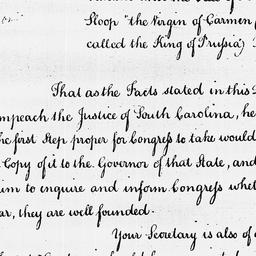 Sloop "the Virgin of Carmen
called the King of Prussia)
That as the Facts stated in this
mpeach the Justice of South Carolina, he
he first Step proper for Congress to take would
Copy of it to the Governor of that State, and
im to inquire and inform Congress whet
ar, they are well founded.
Your Secretary is also of